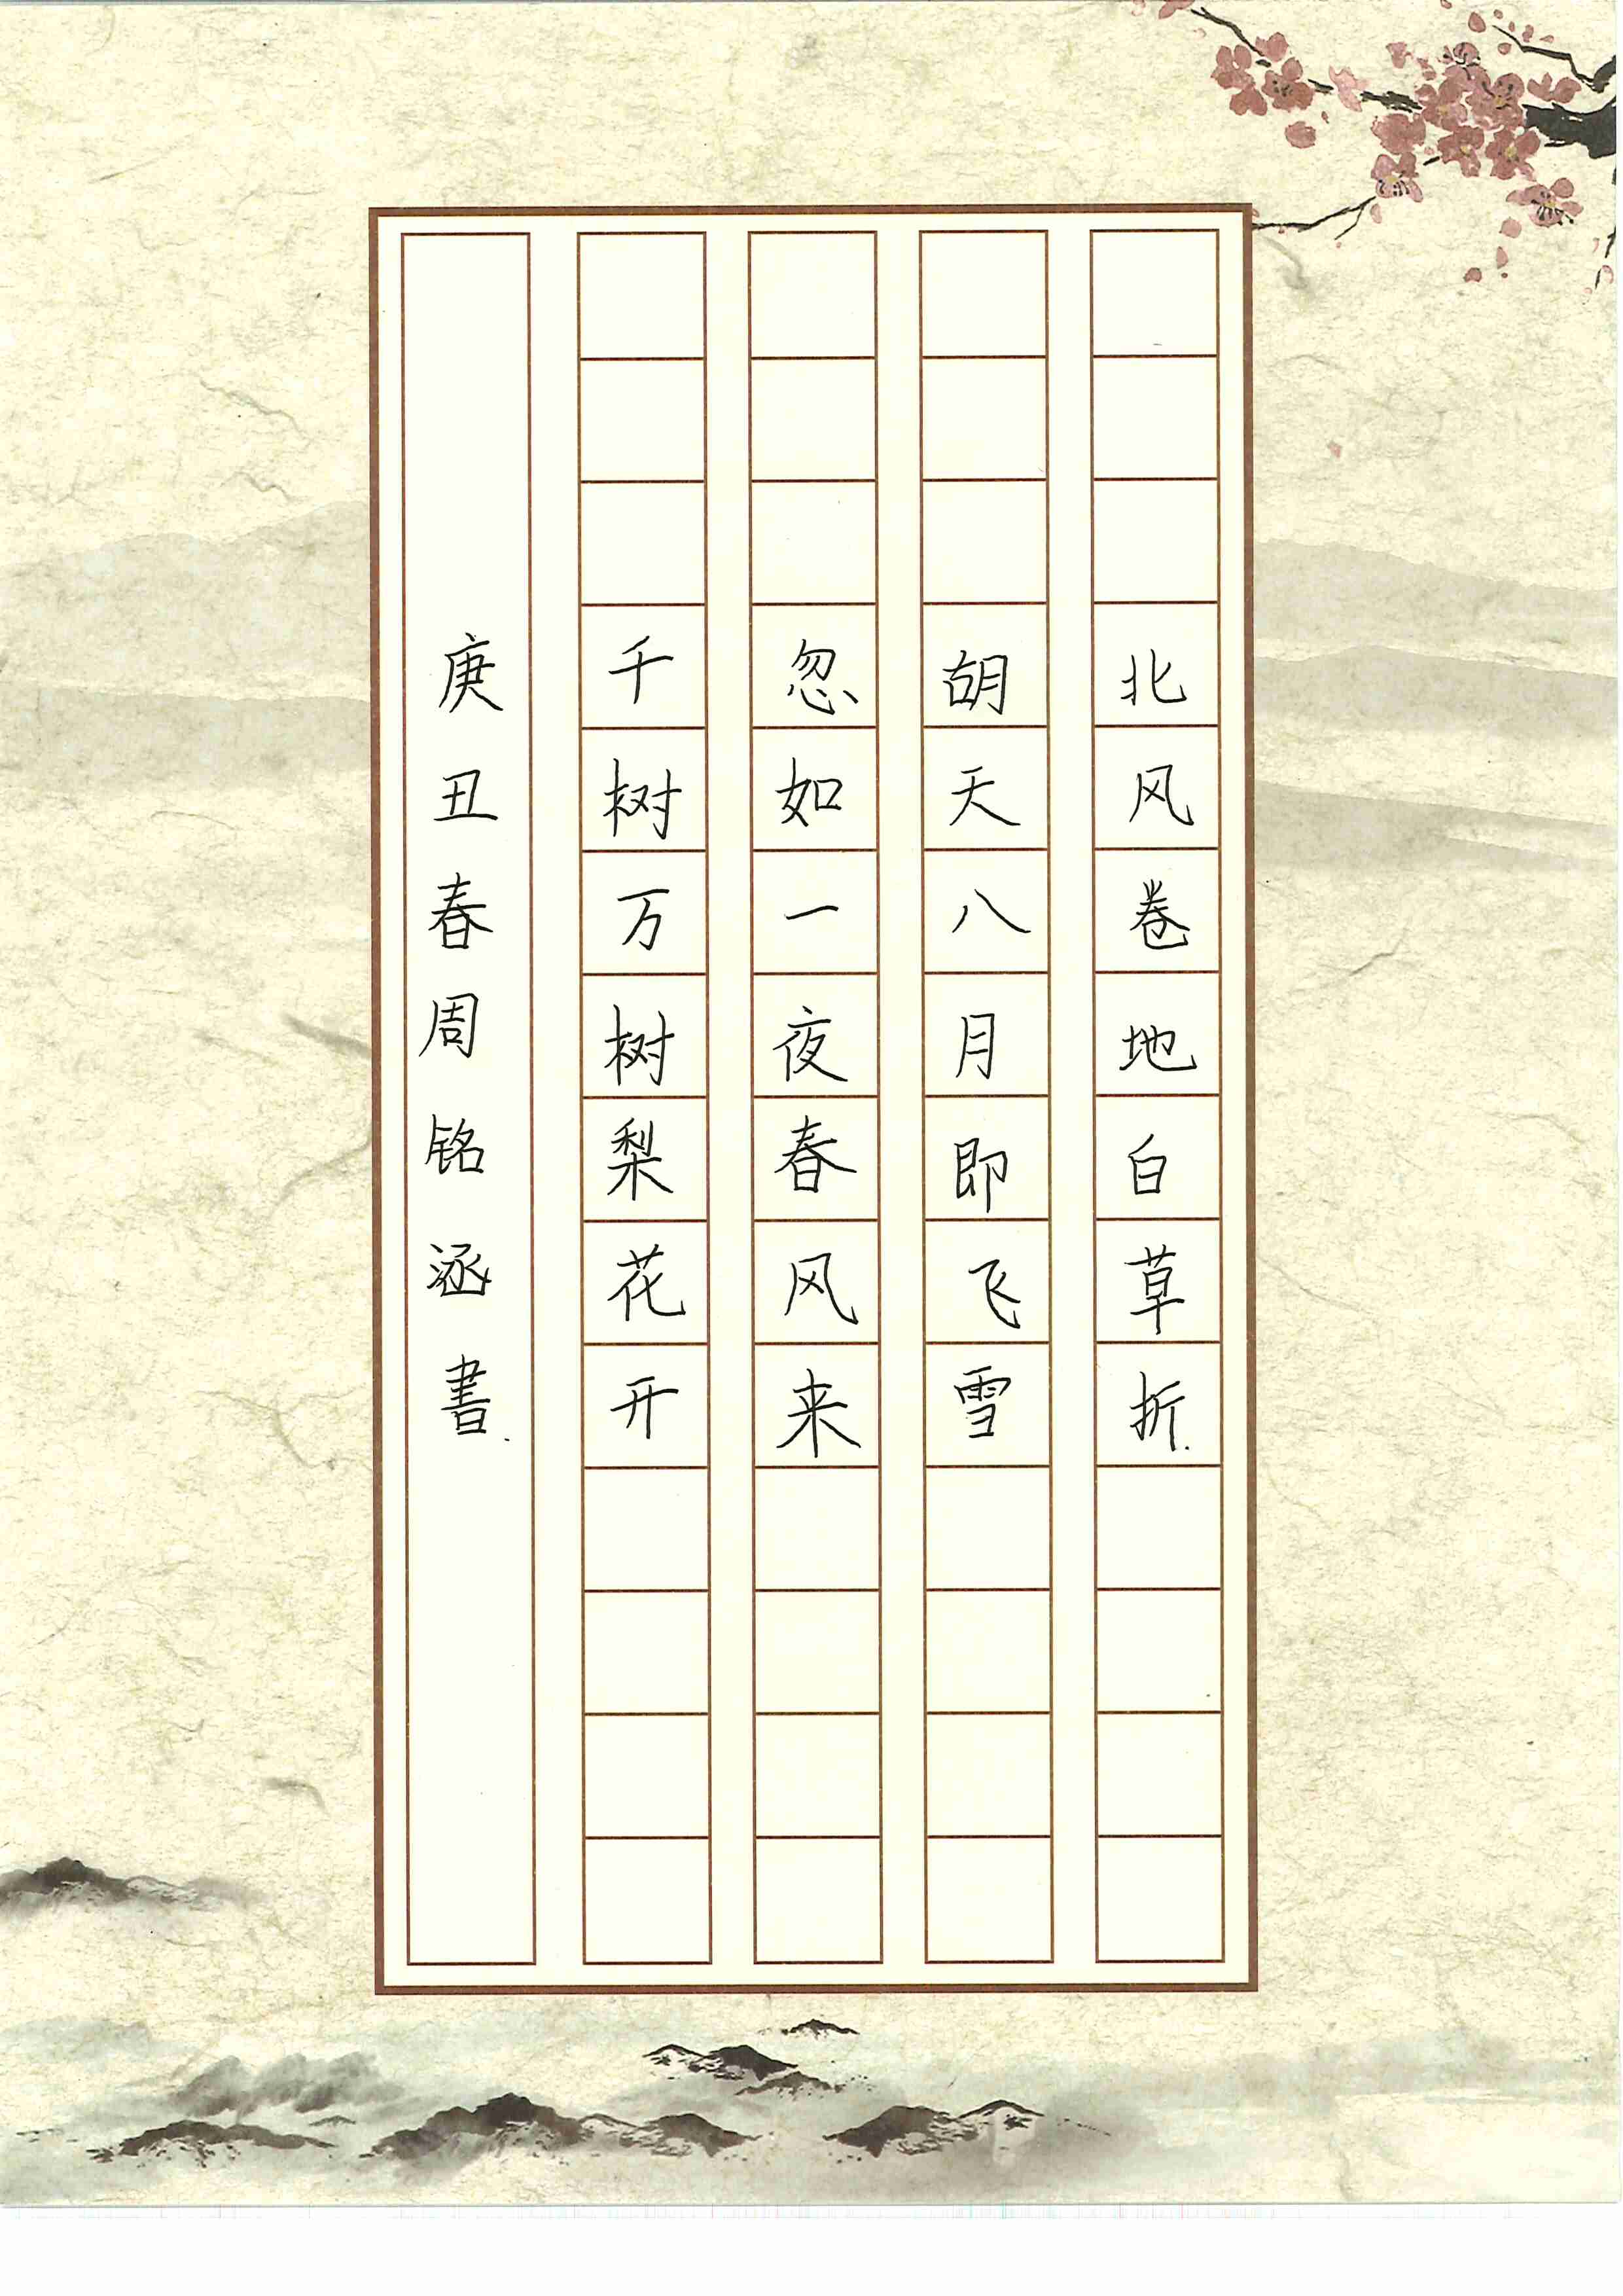 北风卷地白草折.
胡天八月即飞雪
忽如一夜春风来
千树万树梨花开
庚丑春周铭涵書.